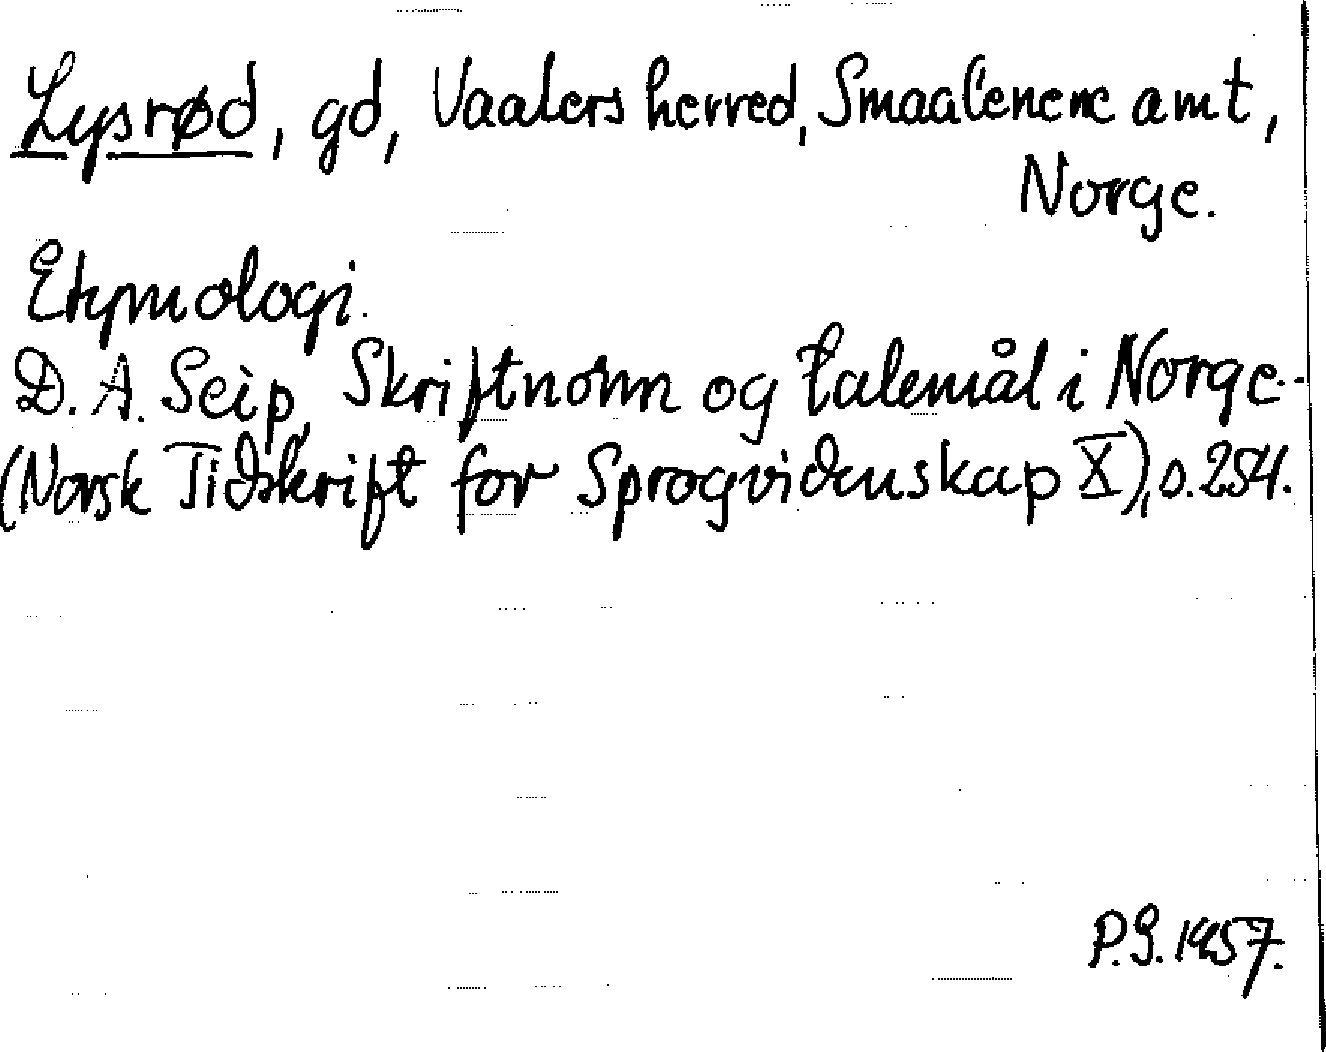 Lysrød, gd, Vaalers herred, Smaalenene amt,
Norge.
Etymologi.
D. A. Seip, Skriftnorm og talemål i Norge..
(Norsk Tidskrift for Sprogvidenskap X), s. 254.
P.G. 1957.